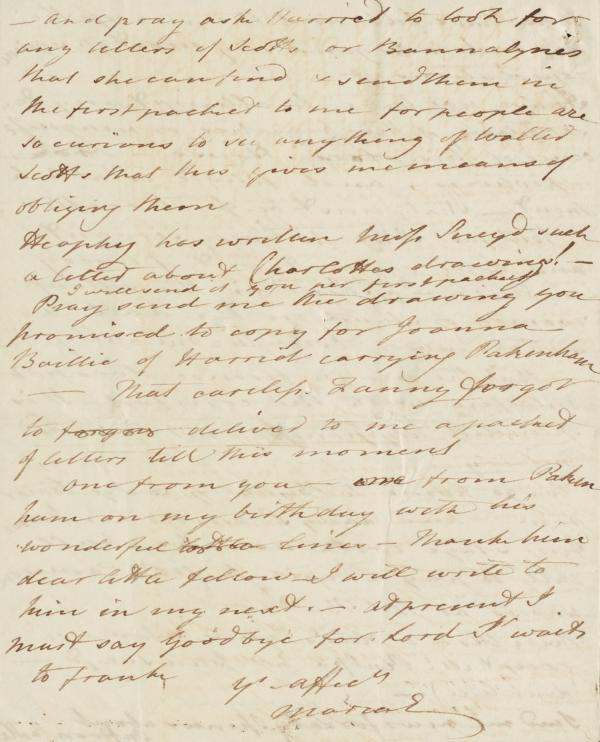 – and pray ask Harriet to look for
any letters of Scotts or Bannatynes
that she can find & send them in
the first packet to me for people are
so curious to see anything of Walter
Scotts that this gives me means of
obliging them
Heaphy has written Miss Sneyd such
a letter about Charlottes drawing! –
I will send it you per first packet
Pray send me the drawing you
promised to copy for Joanna
Baillie of Harriet carrying Pakenham
— That careless Fanny forgot
to forgot deliver to me a packet
of letters till this moment
one from you – one from Paken
ham on my birthday with his
wonderful little lines – Thank him
dear little fellow – I will write to
him in my next. – at present I
must say Goodbye for Lord waits
to frank
yr affect
Maria E